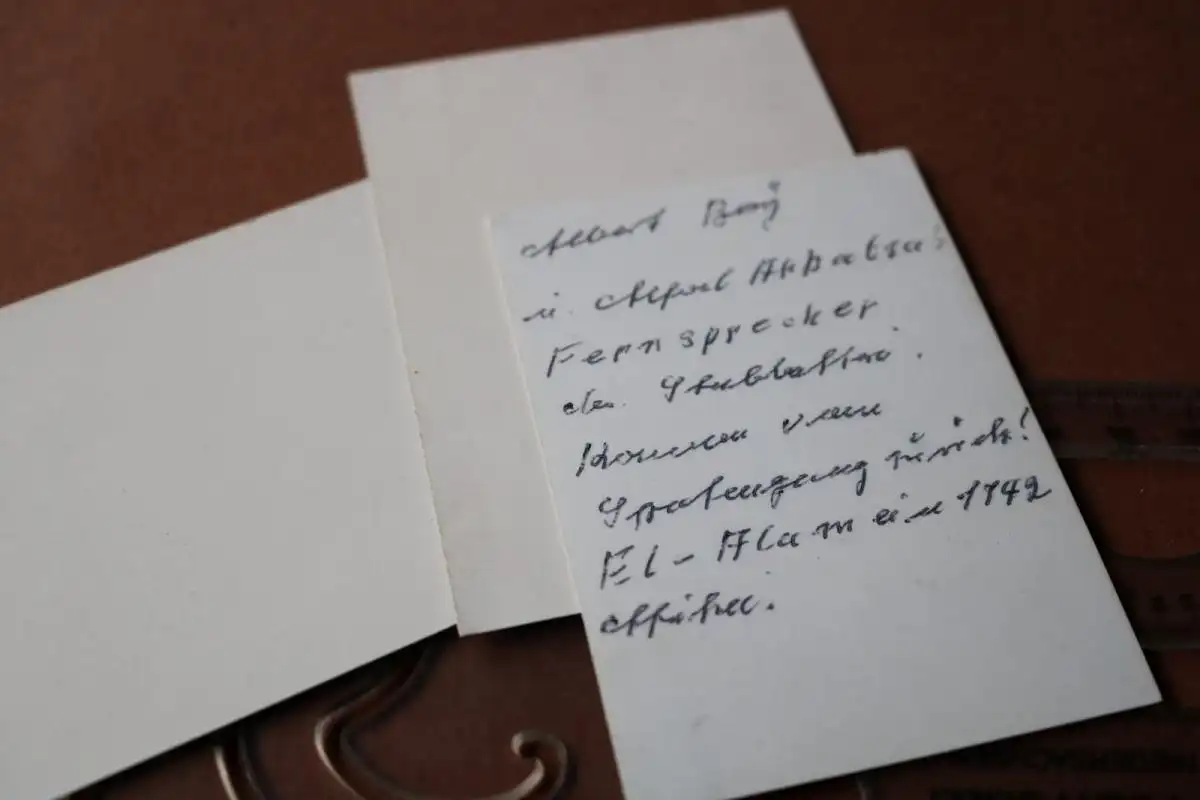 Albert
u. Alfred
Fernsprecher
der
Kommen vom
Spatengang zurück!
El-Alamein 1942
Afrika.